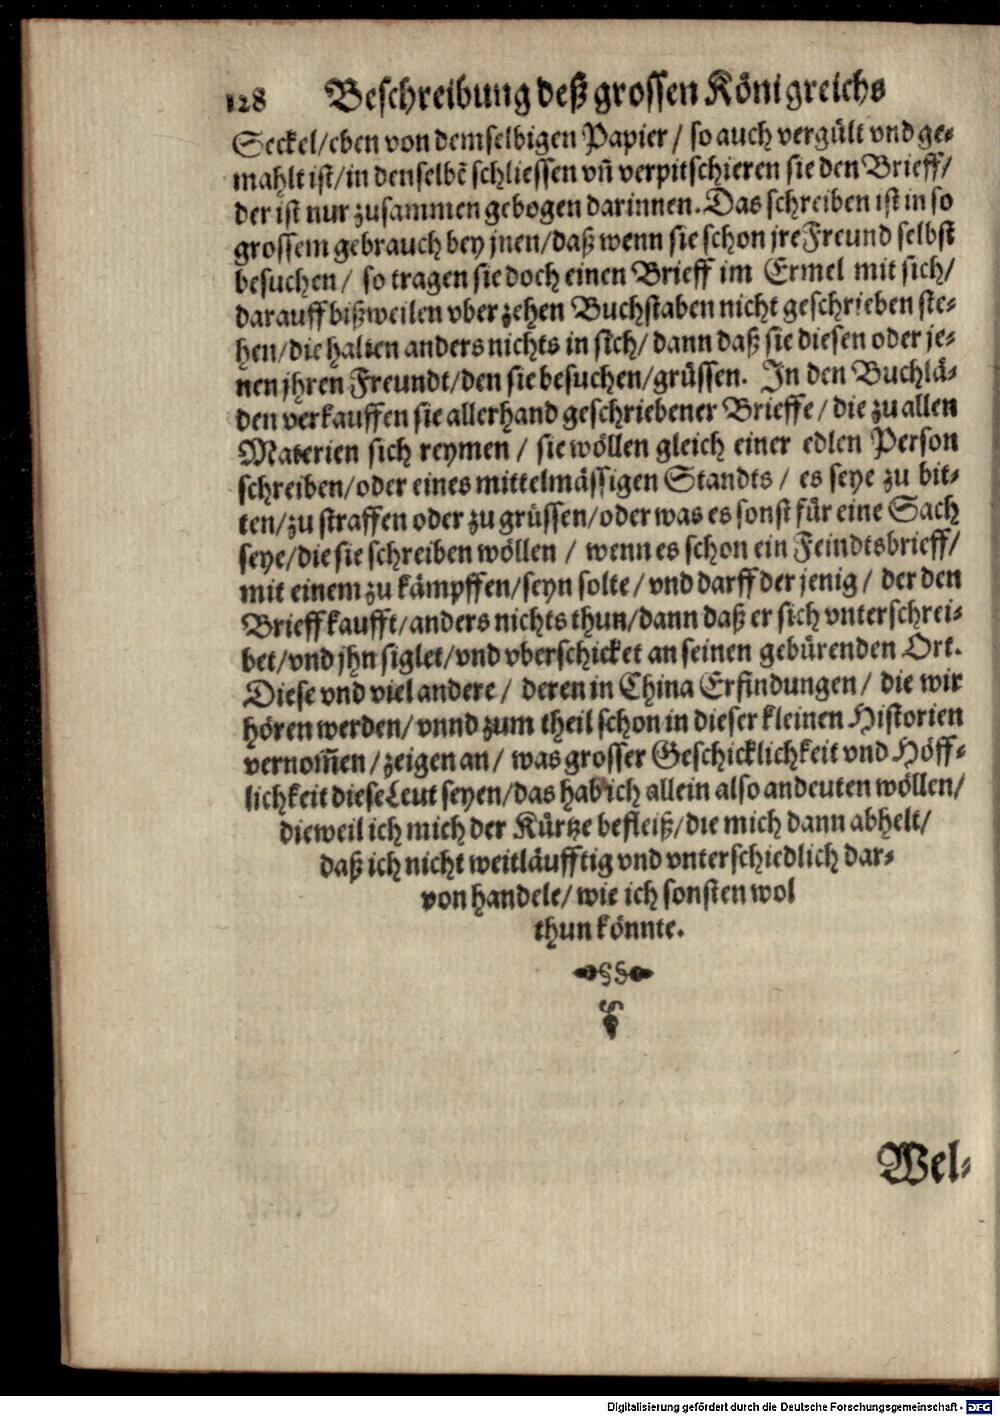 128 Beschreibung deß grossen Königreichs
Seckel/eben von demselbigen Papier / so auch vergült vnd ge-
mahlt ist/in denselbẽ schliessen vñ verpitschieren sie den Brieff/
der ist nur zusammen gebogen darinnen. Das schreiben ist in so
grossem gebrauch bey jnen/daß wenn sie schon jre Freund selbst
besuchen / so tragen sie doch einen Brieff im Ermel mit sich/
darauff bißweilen vber zehen Buchstaben nicht geschrieben ste-
hen/die halten anders nichts in sich/ dann daß sie diesen oder je-
nen jhren Freundt/den sie besuchen/grüssen. In den Buchlä-
den verkauffen sie allerhand geschriebener Brieffe / die zu allen
Materien sich reymen / sie wöllen gleich einer edlen Person
schreiben/oder eines mittelmässigen Standts / es seye zu bit-
ten/zu straffen oder zu grüssen/oder was es sonst für eine Sach
seye/die sie schreiben wöllen / wenn es schon ein Feindtsbrieff/
mit einem zu kämpffen/seyn solte/ vnd darff der jenig / der den
Brieff kaufft/anders nichts thun/dann daß er sich vnterschrei-
bet/vnd jhn siglet/vnd vberschicket an seinen gebürenden Ort.
Diese vnd viel andere / deren in China Erfindungen / die wir
hören werden/ vnnd zum theil schon in dieser kleinen Historien
vernom̃en / zeigen an / was grosser Geschicklichkeit vnd Höff-
lichkeit diese Leut seyen/das hab ich allein also andeuten wöllen/
dieweil ich mich der Kürtze befleiß/die mich dann abhelt/
daß ich nicht weitläufftig vnd vnterschiedlich dar-
von handele/ wie ich sonsten wol
thun könnte.
Wel-
Digitalisierung gefördert durch die Deutsche Forschungsgemeinschaft - DFG